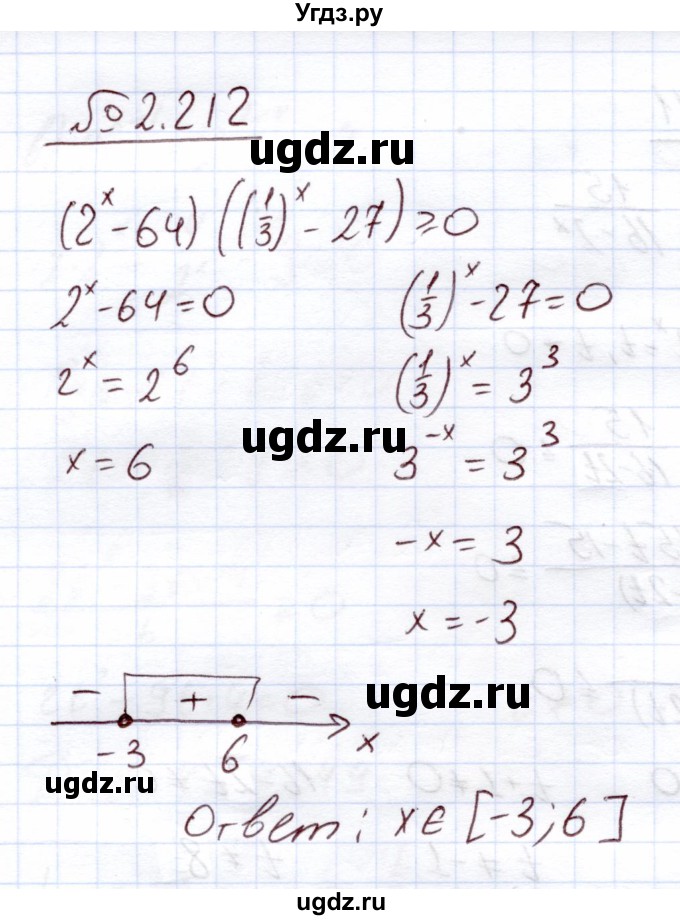 Угдз.ру
№ 2.212
ugdz.ru
(2^x - 64) ((1/3)^x - 27) ≥ 0
2^x - 64 = 0 (1/3)^x - 27 = 0
2^x = 2^6 (1/3)^x = 3^3
ugdz.ru
x = 6 3^-x = 3^3
-x = 3
x = -3
ugdz.ru
- + -
-3 6 x
ugdz.ru
Ответ: x ∈ [-3; 6]
ugdz.ru